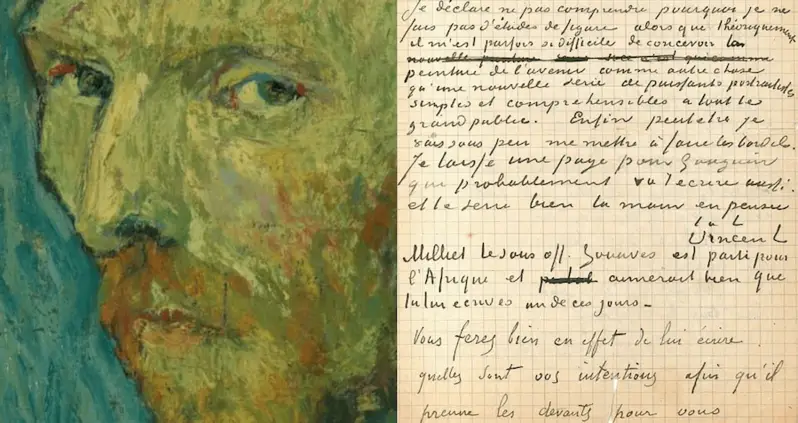 Je déclare ne pas comprendre pourquoi je ne
fais pas d'études de figure alors que théoriquement
il m'est parfois si difficile de concevoir la
peinture de l'avenir comme autre chose
qu'une nouvelle série de puissants portraitistes
simples et comprehensibles a tout le
grand public. Enfin peut etre je
vais sous peu me mettre à faire les bordels.
Je laisse une page pour Gauguin
qui probablement va t'ecrire aussi.
et te serre bien la main en pensee
t. à t.
Vincent
Milliet le sous off. Zouaves est parti pour
l'Afrique et aimerait bien que
tu lui ecrives un de ces jours_
Vous ferez bien en effet de lui écrire
quelles sont vos intentions afin qu'il
prenne les devants pour vous